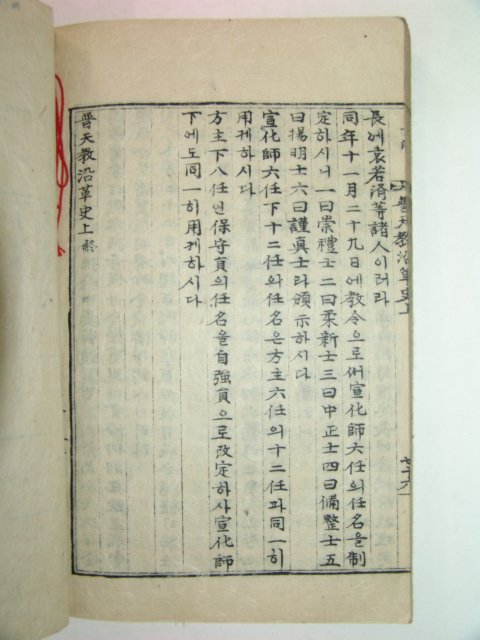 長에 哀若済等諸人이러라
同年十一月二十九日에 教令으로써 宣化師六任의 任名을 制
定하시니 一曰崇禮士 二曰柔新士 三曰中正士 四曰備整士 五
曰揚明士 六曰謹真士라 頒示하시다
宣化師六任下十二任의 任名은 方主六任의 十二任과 同一히
用케하시다
方主下八任인 保守員의 任名을 自強員으로 改定하사 宣化師
下에도 同一히 用케하시다
普天教沿革史上 終
普天教沿革史上
七十六